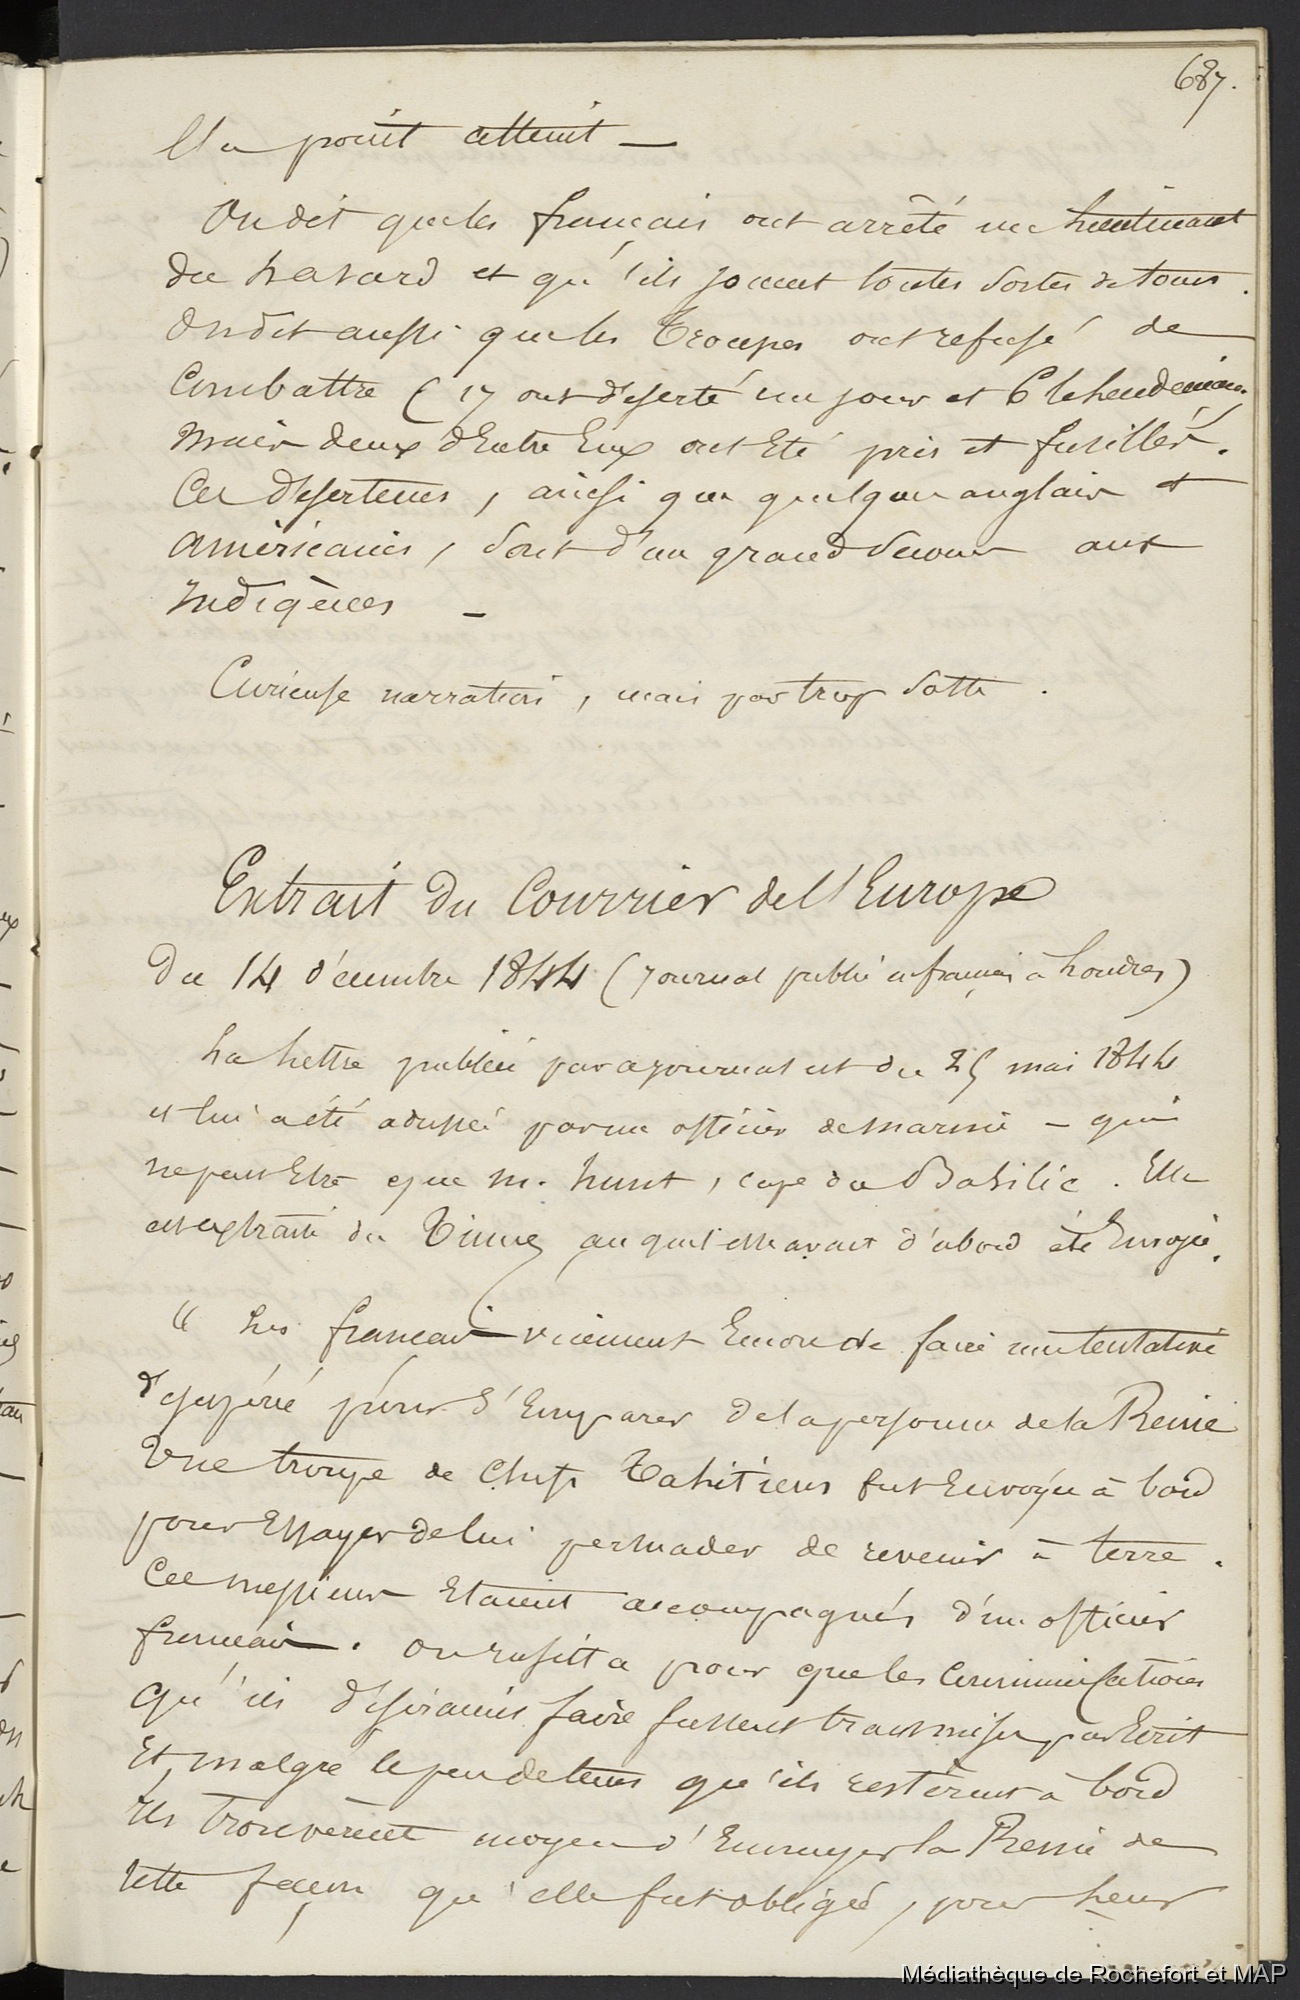 687.
l'a point atteint —
On dit que les français ont arrêté un lieutenant
du hasard et qu'ils jouent toutes sortes de tours.
On dit aussi que les troupes ont refusé de
Combattre (17 ont déserté un jour et 6 le lendemain.
Mais deux d'Entre Eux ont Eté pris et fusillés.
Ces déserteurs, ainsi que quelques anglais et
américains, sont d'un grand secours aux
indigènes —
Curieuse narration, mais par trop sotte.
Extrait du Courrier de l'Europe
Du 14 décembre 1844 (journal publié en français à Londres)
La lettre publiée par ce journal est du 25 mai 1844
et lui a été adressée par un officier de marine — qui
ne peut Etre que M. Hunt, cape du Basilic. Elle
est extraite du Times auquel elle avait d'abord été Envoyée.
" Les français viennent Encore de faire une tentative
désespérée pour s'Emparer de la personne de la Reine
Une troupe de Chefs Tahitiens fut Envoyée à bord
pour Essayer de lui persuader de revenir à terre.
Ces messieurs Etaient accompagnés d'un officier
français. On insista pour que les Communications
qu'ils désiraient faire fussent transmises par Ecrit
Et, malgré le peu de tems qu'ils restèrent à bord
ils trouvèrent moyen d'Ennuyer la Reine de
telle façon qu'elle fut obligée, pour leur
Médiathèque de Rochefort et MAP